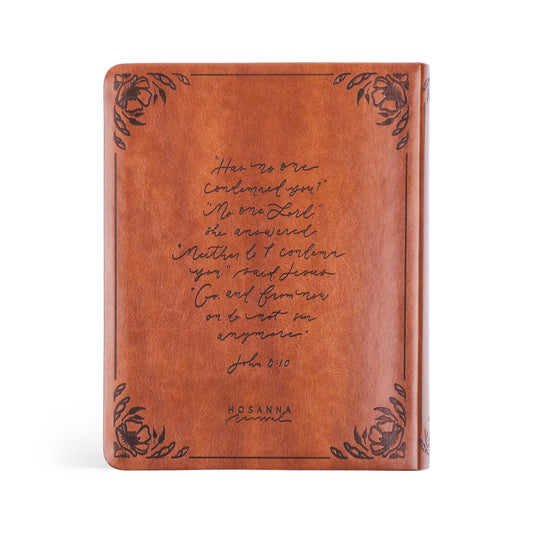 "Has no one
condemned you?"
"No one, Lord,"
she answered.
"Neither do I condemn
you," said Jesus.
"Go, and from now
on do not sin
anymore."
John 8:10
HOSANNA
Revival